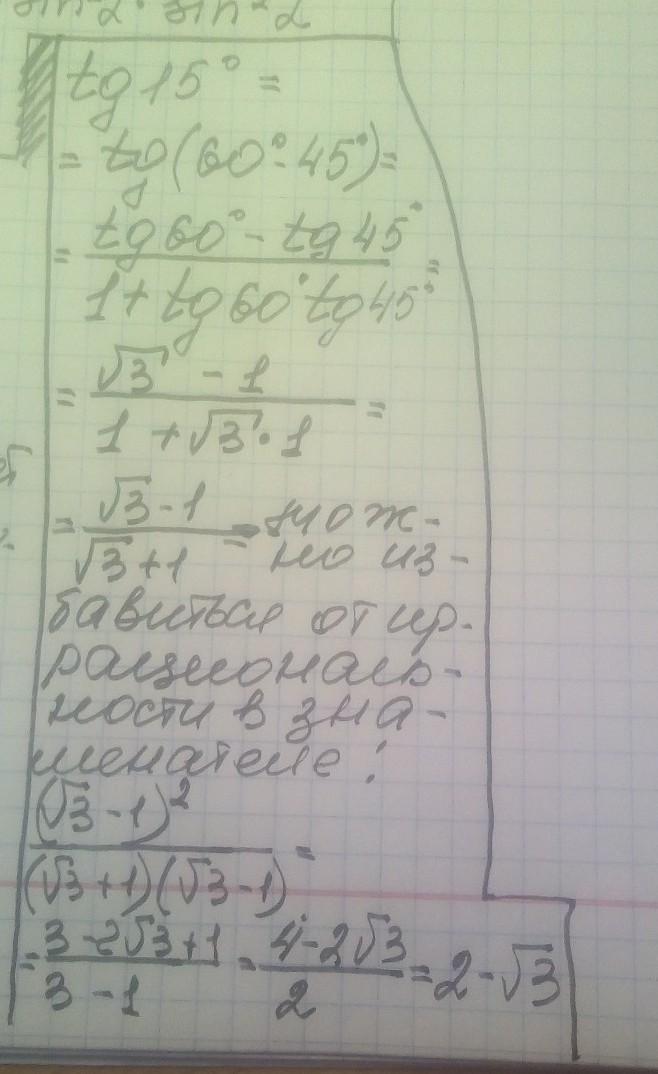 tg 15° =
= tg (60° - 45°) =
= (tg 60° - tg 45°) / (1 + tg 60° tg 45°) =
= (√3 - 1) / (1 + √3 · 1) =
= (√3 - 1) / (√3 + 1) = мож-
но из-
бавиться от ир-
рациональ-
ности в зна-
менателе:
(√3 - 1)² / ((√3 + 1)(√3 - 1)) =
= (3 - 2√3 + 1) / (3 - 1) = (4 - 2√3) / 2 = 2 - √3